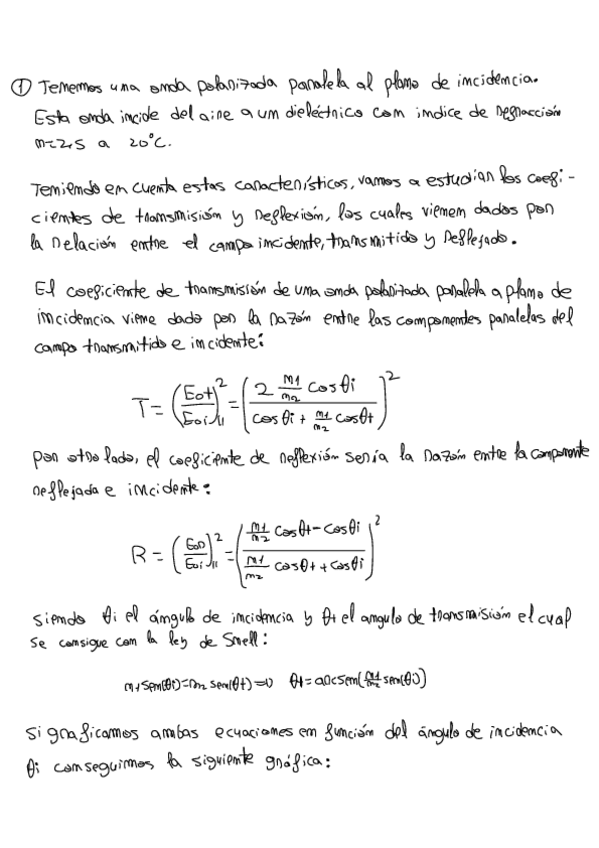 ① Tenemos una onda polarizada paralela al plano de incidencia.
Esta onda incide del aire a un dieléctrico con indice de refracción
n=2,5 a 20°C.
Teniendo en cuenta estas características, vamos a estudiar los coefi-
cientes de transmisión y reflexión, los cuales vienen dados por
la relación entre el campo incidente, transmitido y reflejado.
El coeficiente de transmisión de una onda polarizada paralela a plano de
incidencia viene dado por la razón entre las componentes paralelas del
campo transmitido e incidente:
T = (Eot/Eoi)²_∥ = (2 n1/n2 cosθi / (cosθi + n1/n2 cosθt))²
por otro lado, el coeficiente de reflexión sería la razón entre la componente
reflejada e incidente:
R = (Eor/Eoi)²_∥ = ((n1/n2 cosθt - cosθi) / (n1/n2 cosθt + cosθi))²
siendo θi el ángulo de incidencia y θt el angulo de transmisión el cual
se consigue con la ley de Snell:
n1 sen(θi)=n2 sen(θt) => θt = arcsen(n1/n2 sen(θi))
Si graficamos ambas ecuaciones en función del ángulo de incidencia
θi conseguimos la siguiente gráfica: